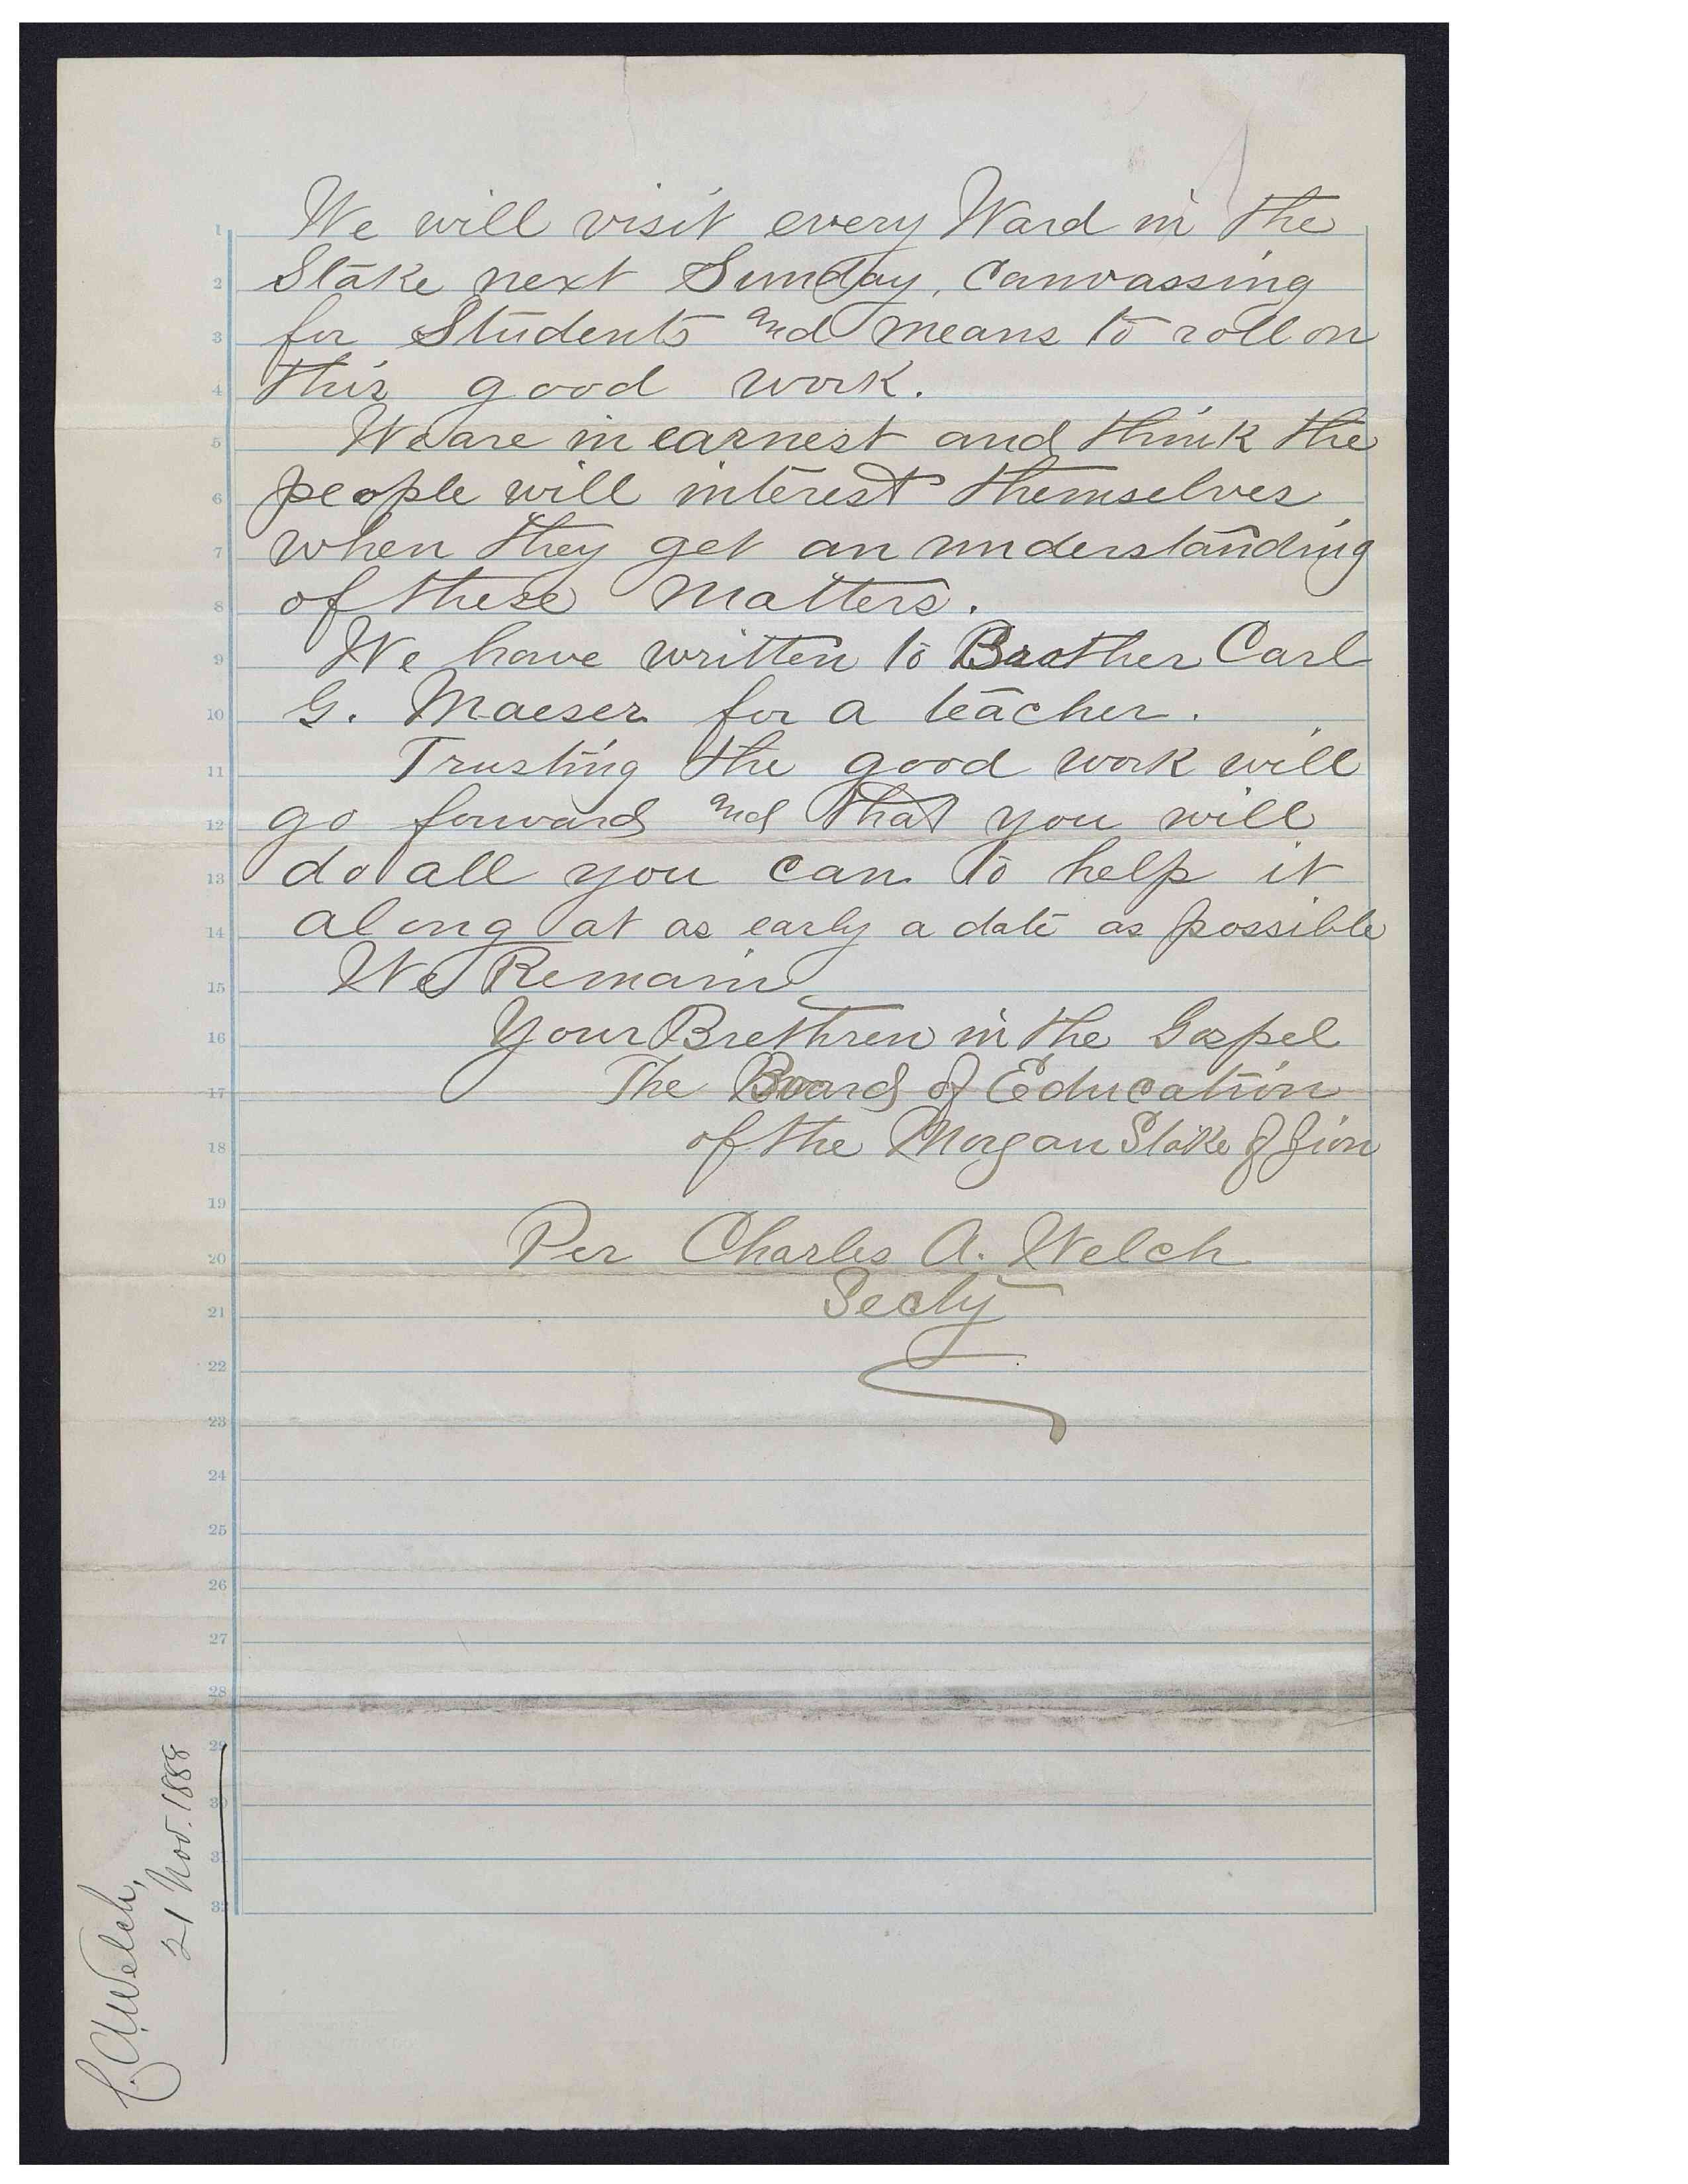 We will visit every Ward in the
Stake next Sunday, Canvassing
for Students and means to roll on
this good work.
We are in earnest and think the
people will interest themselves
when they get an understanding
of these matters.
We have written to Brother Carl
G. Maeser for a teacher.
Trusting the good work will
go forward and that you will
do all you can to help it
along at as early a date as possible
We Remain
Your Brethren in the Gospel
The Board of Education
of the Morgan Stake of Zion
Per Charles A. Welch
Secty
C. A. Welch,
21 Nov. 1888
1
2
3
4
5
6
7
8
9
10
11
12
13
14
15
16
17
18
19
20
21
22
23
24
25
26
27
28
29
30
31
32